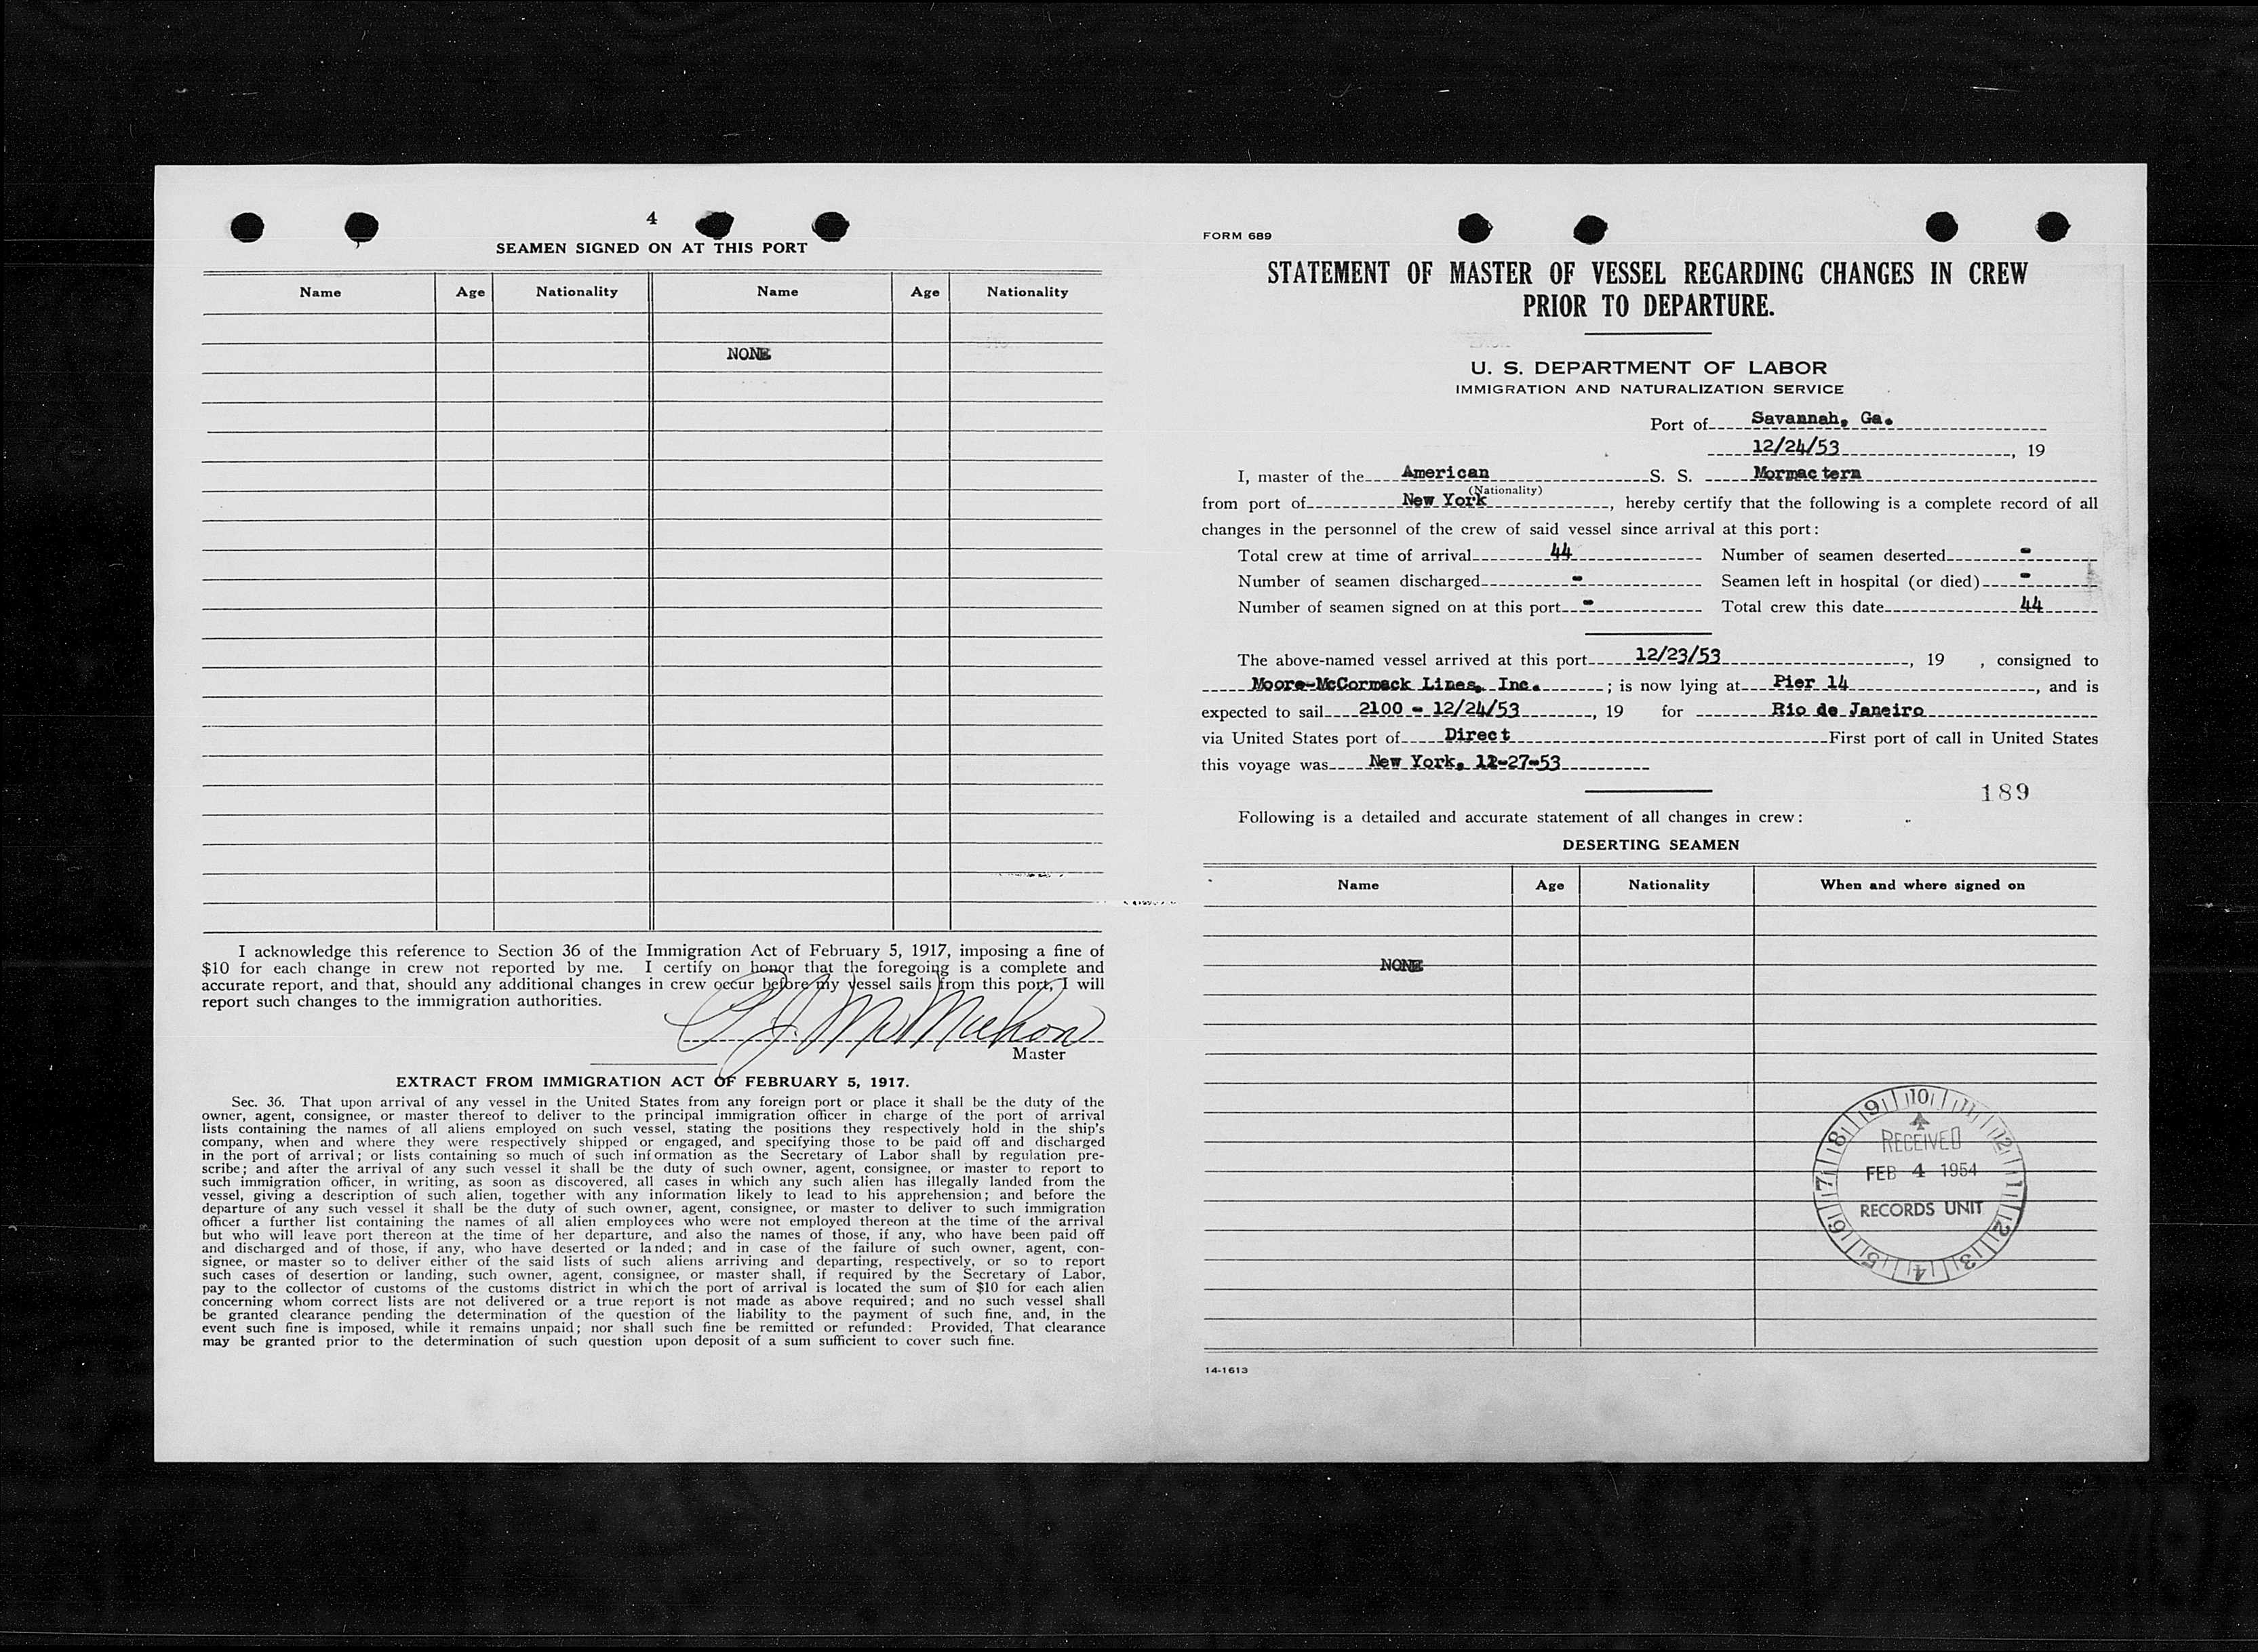 4
SEAMEN SIGNED ON AT THIS PORT
Name Age Nationality Name Age Nationality
NONE
I acknowledge this reference to Section 36 of the Immigration Act of February 5, 1917, imposing a fine of
$10 for each change in crew not reported by me. I certify on honor that the foregoing is a complete and
accurate report, and that, should any additional changes in crew occur before my vessel sails from this port, I will
report such changes to the immigration authorities.
Master
EXTRACT FROM IMMIGRATION ACT OF FEBRUARY 5, 1917.
Sec. 36. That upon arrival of any vessel in the United States from any foreign port or place it shall be the duty of the
owner, agent, consignee, or master thereof to deliver to the principal immigration officer in charge of the port of arrival
lists containing the names of all aliens employed on such vessel, stating the positions they respectively hold in the ship's
company, when and where they were respectively shipped or engaged, and specifying those to be paid off and discharged
in the port of arrival; or lists containing so much of such information as the Secretary of Labor shall by regulation pre-
scribe; and after the arrival of any such vessel it shall be the duty of such owner, agent, consignee, or master to report to
such immigration officer, in writing, as soon as discovered, all cases in which any such alien has illegally landed from the
vessel, giving a description of such alien, together with any information likely to lead to his apprehension; and before the
departure of any such vessel it shall be the duty of such owner, agent, consignee, or master to deliver to such immigration
officer a further list containing the names of all alien employees who were not employed thereon at the time of the arrival
but who will leave port thereon at the time of her departure, and also the names of those, if any, who have been paid off
and discharged and of those, if any, who have deserted or landed; and in case of the failure of such owner, agent, con-
signee, or master so to deliver either of the said lists of such aliens arriving and departing, respectively, or so to report
such cases of desertion or landing, such owner, agent, consignee, or master shall, if required by the Secretary of Labor,
pay to the collector of customs of the customs district in which the port of arrival is located the sum of $10 for each alien
concerning whom correct lists are not delivered or a true report is not made as above required; and no such vessel shall
be granted clearance pending the determination of the question of the liability to the payment of such fine, and, in the
event such fine is imposed, while it remains unpaid; nor shall such fine be remitted or refunded: Provided, That clearance
may be granted prior to the determination of such question upon deposit of a sum sufficient to cover such fine.
FORM 689
STATEMENT OF MASTER OF VESSEL REGARDING CHANGES IN CREW
PRIOR TO DEPARTURE.
U. S. DEPARTMENT OF LABOR
IMMIGRATION AND NATURALIZATION SERVICE
Port of Savannah, Ga.
12/24/53, 19
I, master of the American S. S. Mormactern
(Nationality)
from port of New York, hereby certify that the following is a complete record of all
changes in the personnel of the crew of said vessel since arrival at this port:
Total crew at time of arrival 44 Number of seamen deserted -
Number of seamen discharged - Seamen left in hospital (or died) -
Number of seamen signed on at this port - Total crew this date 44
The above-named vessel arrived at this port 12/23/53, 19 , consigned to
Moore-McCormack Lines, Inc. ; is now lying at Pier 14, and is
expected to sail 2100 - 12/24/53, 19 for Rio de Janeiro
via United States port of Direct First port of call in United States
this voyage was New York, 12-27-53
189
Following is a detailed and accurate statement of all changes in crew:
DESERTING SEAMEN
Name Age Nationality When and where signed on
NONE
9 10 11 12 1 2 3 4 5 6 7 8
RECEIVED
FEB 4 1954
RECORDS UNIT
14-1613